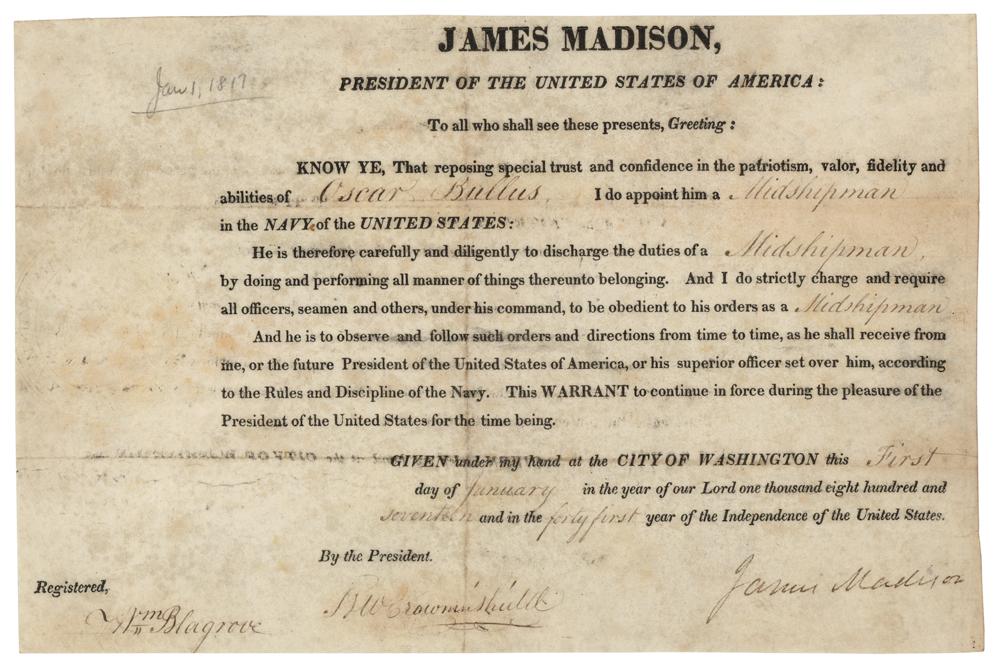 JAMES MADISON,
Jan 1, 1817
PRESIDENT OF THE UNITED STATES OF AMERICA:
To all who shall see these presents, Greeting:
KNOW YE, That reposing special trust and confidence in the patriotism, valor, fidelity and
abilities of Oscar Bullus, I do appoint him a Midshipman
in the NAVY of the UNITED STATES:
He is therefore carefully and diligently to discharge the duties of a Midshipman,
by doing and performing all manner of things thereunto belonging. And I do strictly charge and require
all officers, seamen and others, under his command, to be obedient to his orders as a Midshipman.
And he is to observe and follow such orders and directions from time to time, as he shall receive from
me, or the future President of the United States of America, or his superior officer set over him, according
to the Rules and Discipline of the Navy. This WARRANT to continue in force during the pleasure of the
President of the United States for the time being.
GIVEN under my hand at the CITY OF WASHINGTON this First
day of January in the year of our Lord one thousand eight hundred and
seventeen and in the forty first year of the Independence of the United States.
By the President.
James Madison
Registered,
BW Crowninshield
Wm Blagrove